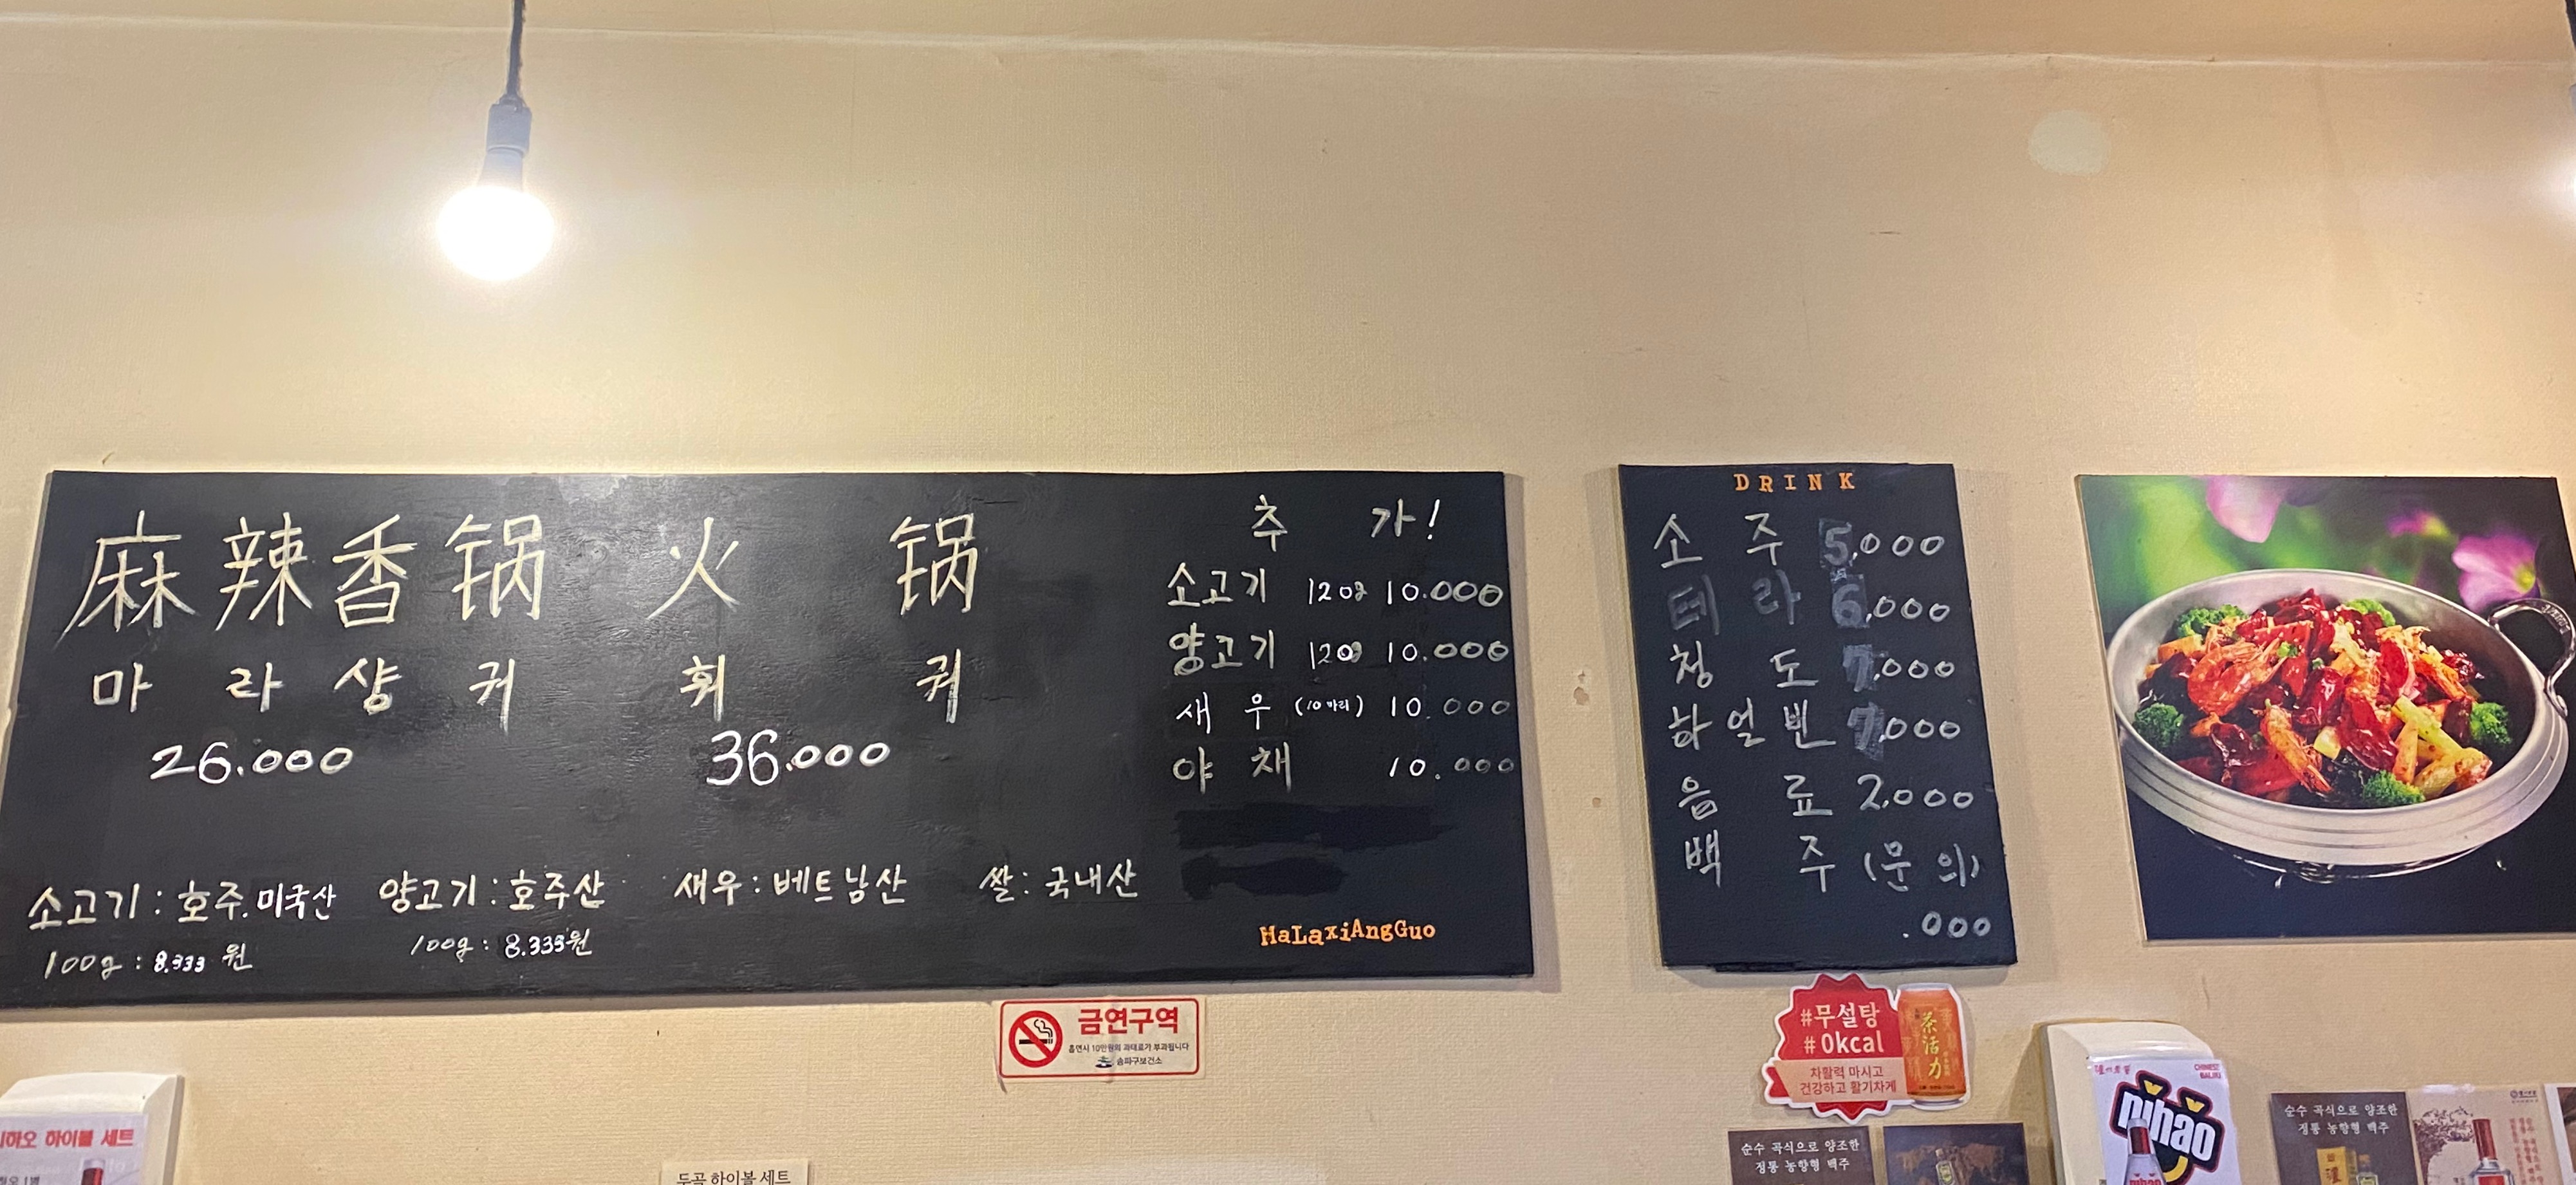 麻辣香锅 火锅
마라샹궈 훠궈
26.000 36.000
소고기: 호주.미국산 양고기: 호주산 새우: 베트남산 쌀: 국내산
100g: 8.333 원 100g: 8.333원
추 가!
소고기 120g 10.000
양고기 120g 10.000
새우 (10마리) 10.000
야채 10.000
HaLaxiAngGuo
DRINK
소주 5,000
테라 6,000
칭도 7,000
하얼빈 7,000
음료 2,000
백주 (문의)
.000
금연구역
흡연시 10만원의 과태료가 부과됩니다
송파구보건소
#무설탕
#0kcal
차활력 마시고
건강하고 활기차게
茶活力
하오 하이볼 세트
두곡 하이볼 세트
순수 곡식으로 양조한
정통 농향형 백주
CHINESE
BAIJIU
nihao
순수 곡식으로 양조한
정통 농향형 백주